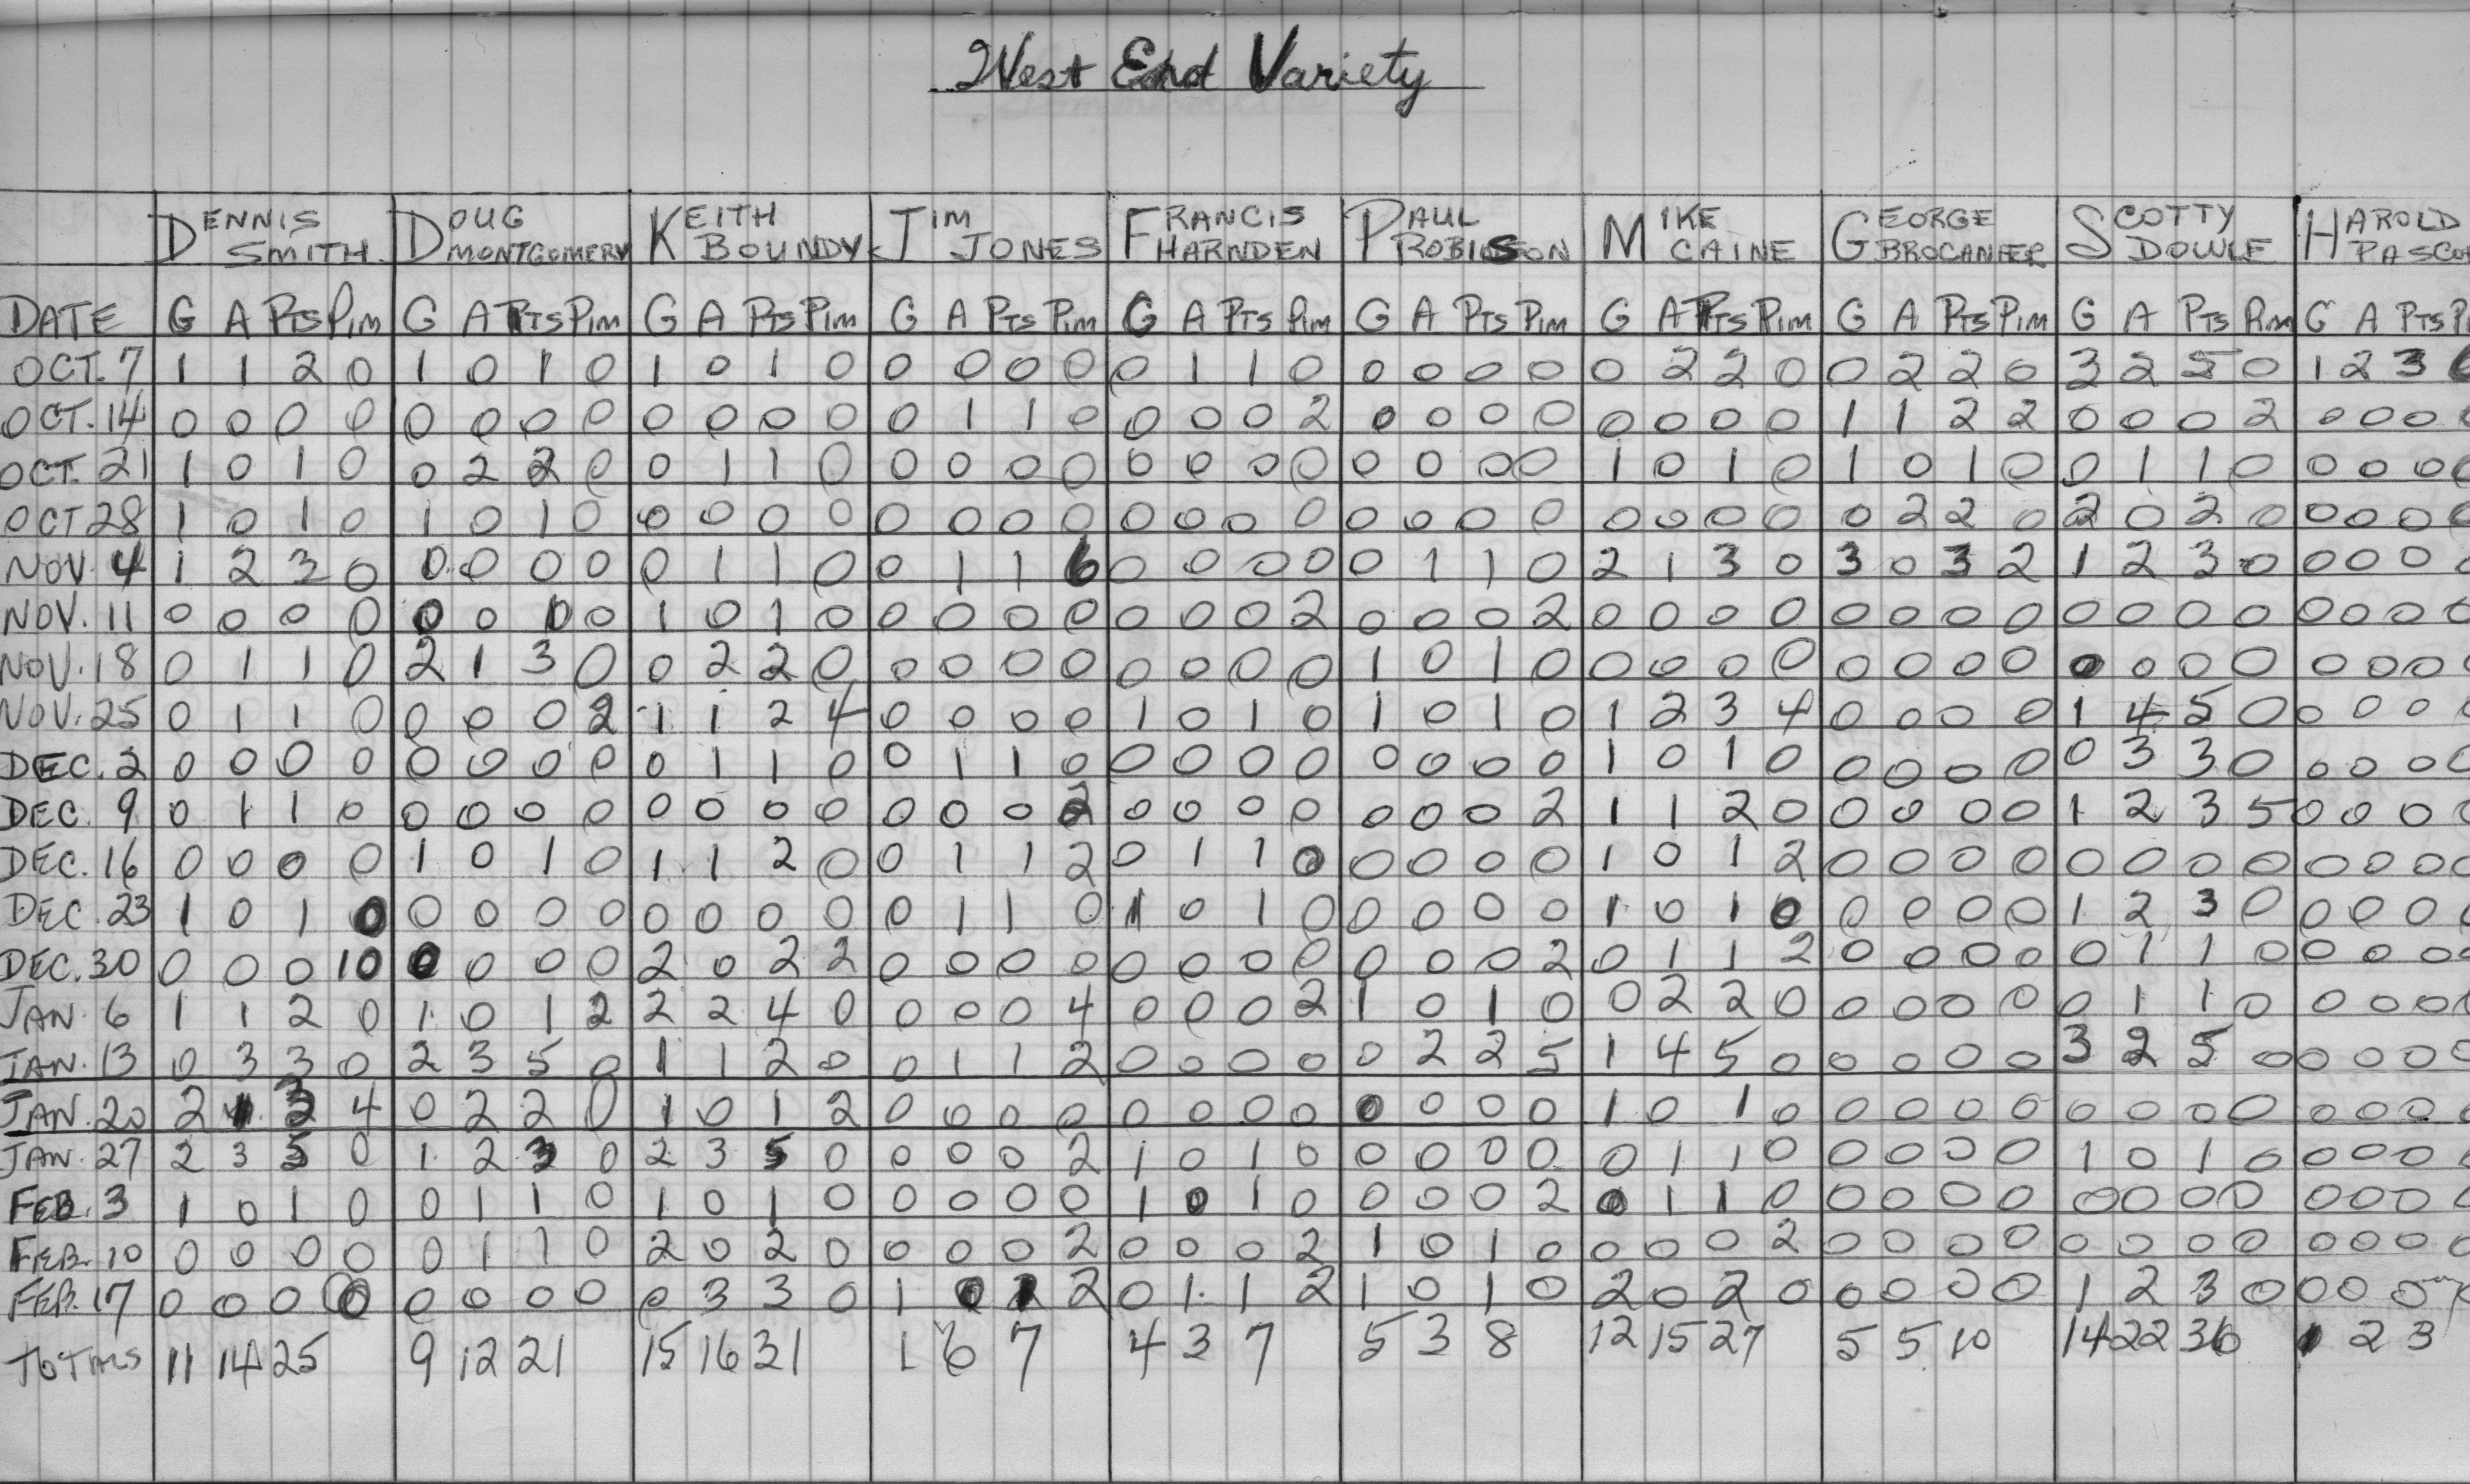 West End Variety
DENNIS SMITH DOUG MONTGOMERY KEITH BOUNDY JIM JONES FRANCIS HARNDEN PAUL ROBINSON MIKE CAINE GEORGE SCOTTY DOWLE HAROLD
DATE G A PTS PIM G A PTS PIM G A PTS PIM G A PTS PIM G A PTS PIM G A PTS PIM G A PTS PIM G A PTS PIM G A PTS PIM G A PTS
OCT. 7 1 1 2 0 1 0 1 0 1 0 1 0 0 0 0 0 0 1 1 0 0 0 0 0 0 2 2 0 0 2 2 0 3 2 5 0 1 2 3
OCT. 14 0 0 0 0 0 0 0 0 0 0 0 0 0 1 1 0 0 0 0 2 0 0 0 0 0 0 0 0 1 1 2 2 0 0 0 2 0 0 0
OCT. 21 1 0 1 0 0 2 2 0 0 1 1 0 0 0 0 0 0 0 0 0 0 0 0 0 1 0 1 0 1 0 1 0 0 1 1 0 0 0 0
OCT 28 1 0 1 0 1 0 1 0 0 0 0 0 0 0 0 0 0 0 0 0 0 0 0 0 0 0 0 0 0 2 2 0 2 0 2 0 0 0 0
NOV. 4 1 2 3 0 0 0 0 0 0 1 1 0 0 1 1 6 0 0 0 0 0 1 1 0 2 1 3 0 3 0 3 2 1 2 3 0 0 0 0
NOV. 11 0 0 0 0 0 0 0 0 1 0 1 0 0 0 0 0 0 0 0 2 0 0 0 2 0 0 0 0 0 0 0 0 0 0 0 0 0 0 0
NOV. 18 0 1 1 0 2 1 3 0 0 2 2 0 0 0 0 0 0 0 0 0 1 0 1 0 0 0 0 0 0 0 0 0 0 0 0 0 0 0 0
NOV. 25 0 1 1 0 0 0 0 2 1 1 2 4 0 0 0 0 1 0 1 0 1 0 1 0 1 2 3 4 0 0 0 0 1 4 5 0 0 0 0
DEC. 2 0 0 0 0 0 0 0 0 0 1 1 0 0 1 1 0 0 0 0 0 0 0 0 0 1 0 1 0 0 0 0 0 0 3 3 0 0 0 0
DEC. 9 0 1 1 0 0 0 0 0 0 0 0 0 0 0 0 2 0 0 0 0 0 0 0 2 1 1 2 0 0 0 0 0 1 2 3 5 0 0 0
DEC. 16 0 0 0 0 1 0 1 0 1 1 2 0 0 1 1 2 0 1 1 0 0 0 0 0 1 0 1 2 0 0 0 0 0 0 0 0 0 0 0
DEC. 23 1 0 1 0 0 0 0 0 0 0 0 0 0 1 1 0 1 0 1 0 0 0 0 0 1 0 1 0 0 0 0 0 1 2 3 0 0 0 0
DEC. 30 0 0 0 10 0 0 0 0 2 0 2 2 0 0 0 0 0 0 0 0 0 0 0 2 0 1 1 2 0 0 0 0 0 1 1 0 0 0 0
JAN. 6 1 1 2 0 1 0 1 2 2 2 4 0 0 0 0 4 0 0 0 2 1 0 1 0 0 2 2 0 0 0 0 0 0 1 1 0 0 0 0
JAN. 13 0 3 3 0 2 3 5 0 1 1 2 0 0 1 1 2 0 0 0 0 0 2 2 5 1 4 5 0 0 0 0 0 3 2 5 0 0 0 0
JAN. 20 2 1 3 4 0 2 2 0 1 0 1 2 0 0 0 0 0 0 0 0 0 0 0 0 1 0 1 0 0 0 0 0 0 0 0 0 0 0 0
JAN. 27 2 3 5 0 1 2 3 0 2 3 5 0 0 0 0 2 1 0 1 0 0 0 0 0 0 1 1 0 0 0 0 0 1 0 1 0 0 0 0
FEB. 3 1 0 1 0 0 1 1 0 1 0 1 0 0 0 0 0 1 0 1 0 0 0 0 2 0 1 1 0 0 0 0 0 0 0 0 0 0 0 0
FEB. 10 0 0 0 0 0 1 1 0 2 0 2 0 0 0 0 2 0 0 0 2 1 0 1 0 0 0 0 2 0 0 0 0 0 0 0 0 0 0 0
FEB. 17 0 0 0 0 0 0 0 0 0 3 3 0 1 0 1 2 0 1 1 2 1 0 1 0 2 0 2 0 0 0 0 0 1 2 3 0 0 0 0
TOTALS 11 14 25 9 12 21 15 16 31 1 6 7 4 3 7 5 3 8 12 15 27 5 5 10 14 22 36 1 2 3